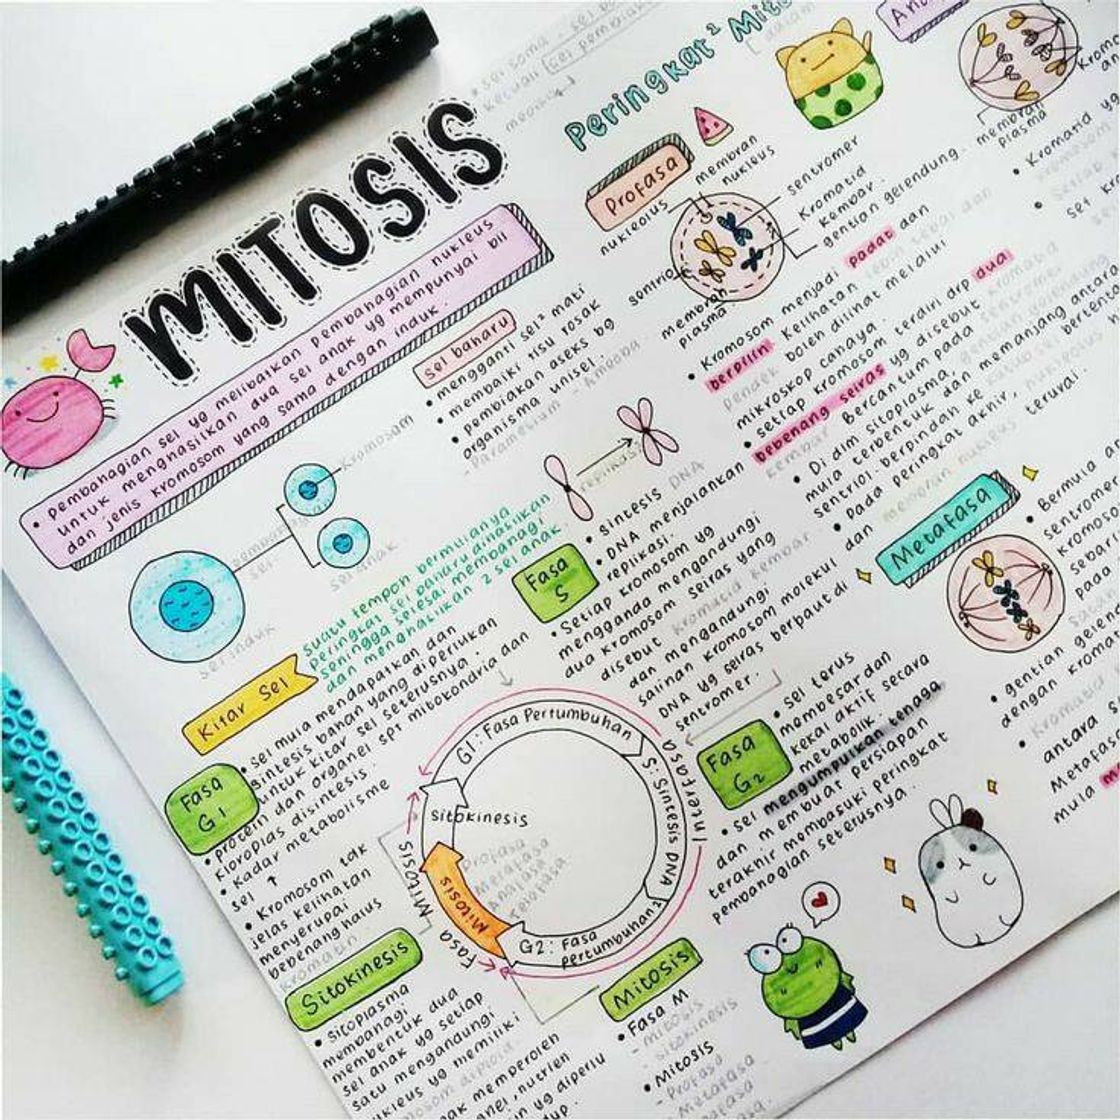 MITOSIS
• Pembahagian sel yg melibatkan pembahagian nukleus
untuk menghasilkan dua sel anak yg mempunyai bil
dan jenis kromosom yang sama dengan induk.
Kromosom
Sel baharu
• mengganti sel² mati
• membaiki tisu rosak
• pembiakan aseks bg
organisma unisel.
- Paramesium - Amoeba
sel induk
sel anak
Kitar Sel
Suatu tempoh bermulanya
peringkat sel baharu dihasilkan
sehingga selesai membahagi
dan menghasilkan 2 sel anak.
Fasa
G1
• Sel mula mendapatkan dan
sintesis bahan yang diperlukan
untuk kitar sel seterusnya.
• protein dan organel spt mitokondria dan
kloroplas disintesis
• Kadar metabolisme
sel ↑
• Kromosom tak
jelas kelihatan
menyerupai
bebenang halus
kromatin
replikasi
Fasa
S
• Sintesis DNA
• DNA menjalankan
replikasi.
• Setiap kromosom yg
mengganda mengandungi
dua kromosom seiras yang
disebut kromatid kembar
dan mengandungi
salinan kromosom molekul
DNA yg seiras berpaut di
sentromer.
Fasa
G2
• sel terus
membesar dan
kekal aktif secara
metabolik.
• sel mengumpulkan tenaga
dan membuat persiapan
terakhir memasuki peringkat
pembahagian seterusnya.
G1: Fasa Pertumbuhan
S: Sintesis DNA
G2: Fasa
Pertumbuhan
Interfasa
sitokinesis
Mitosis
Profasa
Metafasa
Anafasa
Telofasa
Fasa Mitosis
Sitokinesis
• Sitoplasma
membahagi
membentuk dua
sel anak yg setiap
satu mengandungi
nukleus yg memiliki
Mitosis
• Fasa M
- mitosis
- sitokinesis
• Mitosis
- Profasa
- Metafasa
Peringkat² Mito
Profasa
membran
nukleus
nukleolus
sentromer
Kromatid
kembar
gentian gelendong
sentriol
membran
plasma
• Kromosom menjadi padat dan
berpilin. Kelihatan
pendek boleh dilihat melalui
mikroskop cahaya.
• setiap kromosom terdiri drp dua
bebenang seiras yg disebut kromatid
kembar Bercantum pada sentromer
• Di dlm sitoplasma, gentian gelendong
mula terbentuk dan memanjang antara
sentriol berpindah ke
• Pada peringkat akhir, nukleolus
dan membran nukleus terurai.
Metafasa
membran
plasma
• Kromatid
• Bermula
sentromer
kromosom
pada
• gentian
dengan
Kromatid
antara
Metafasa
mula